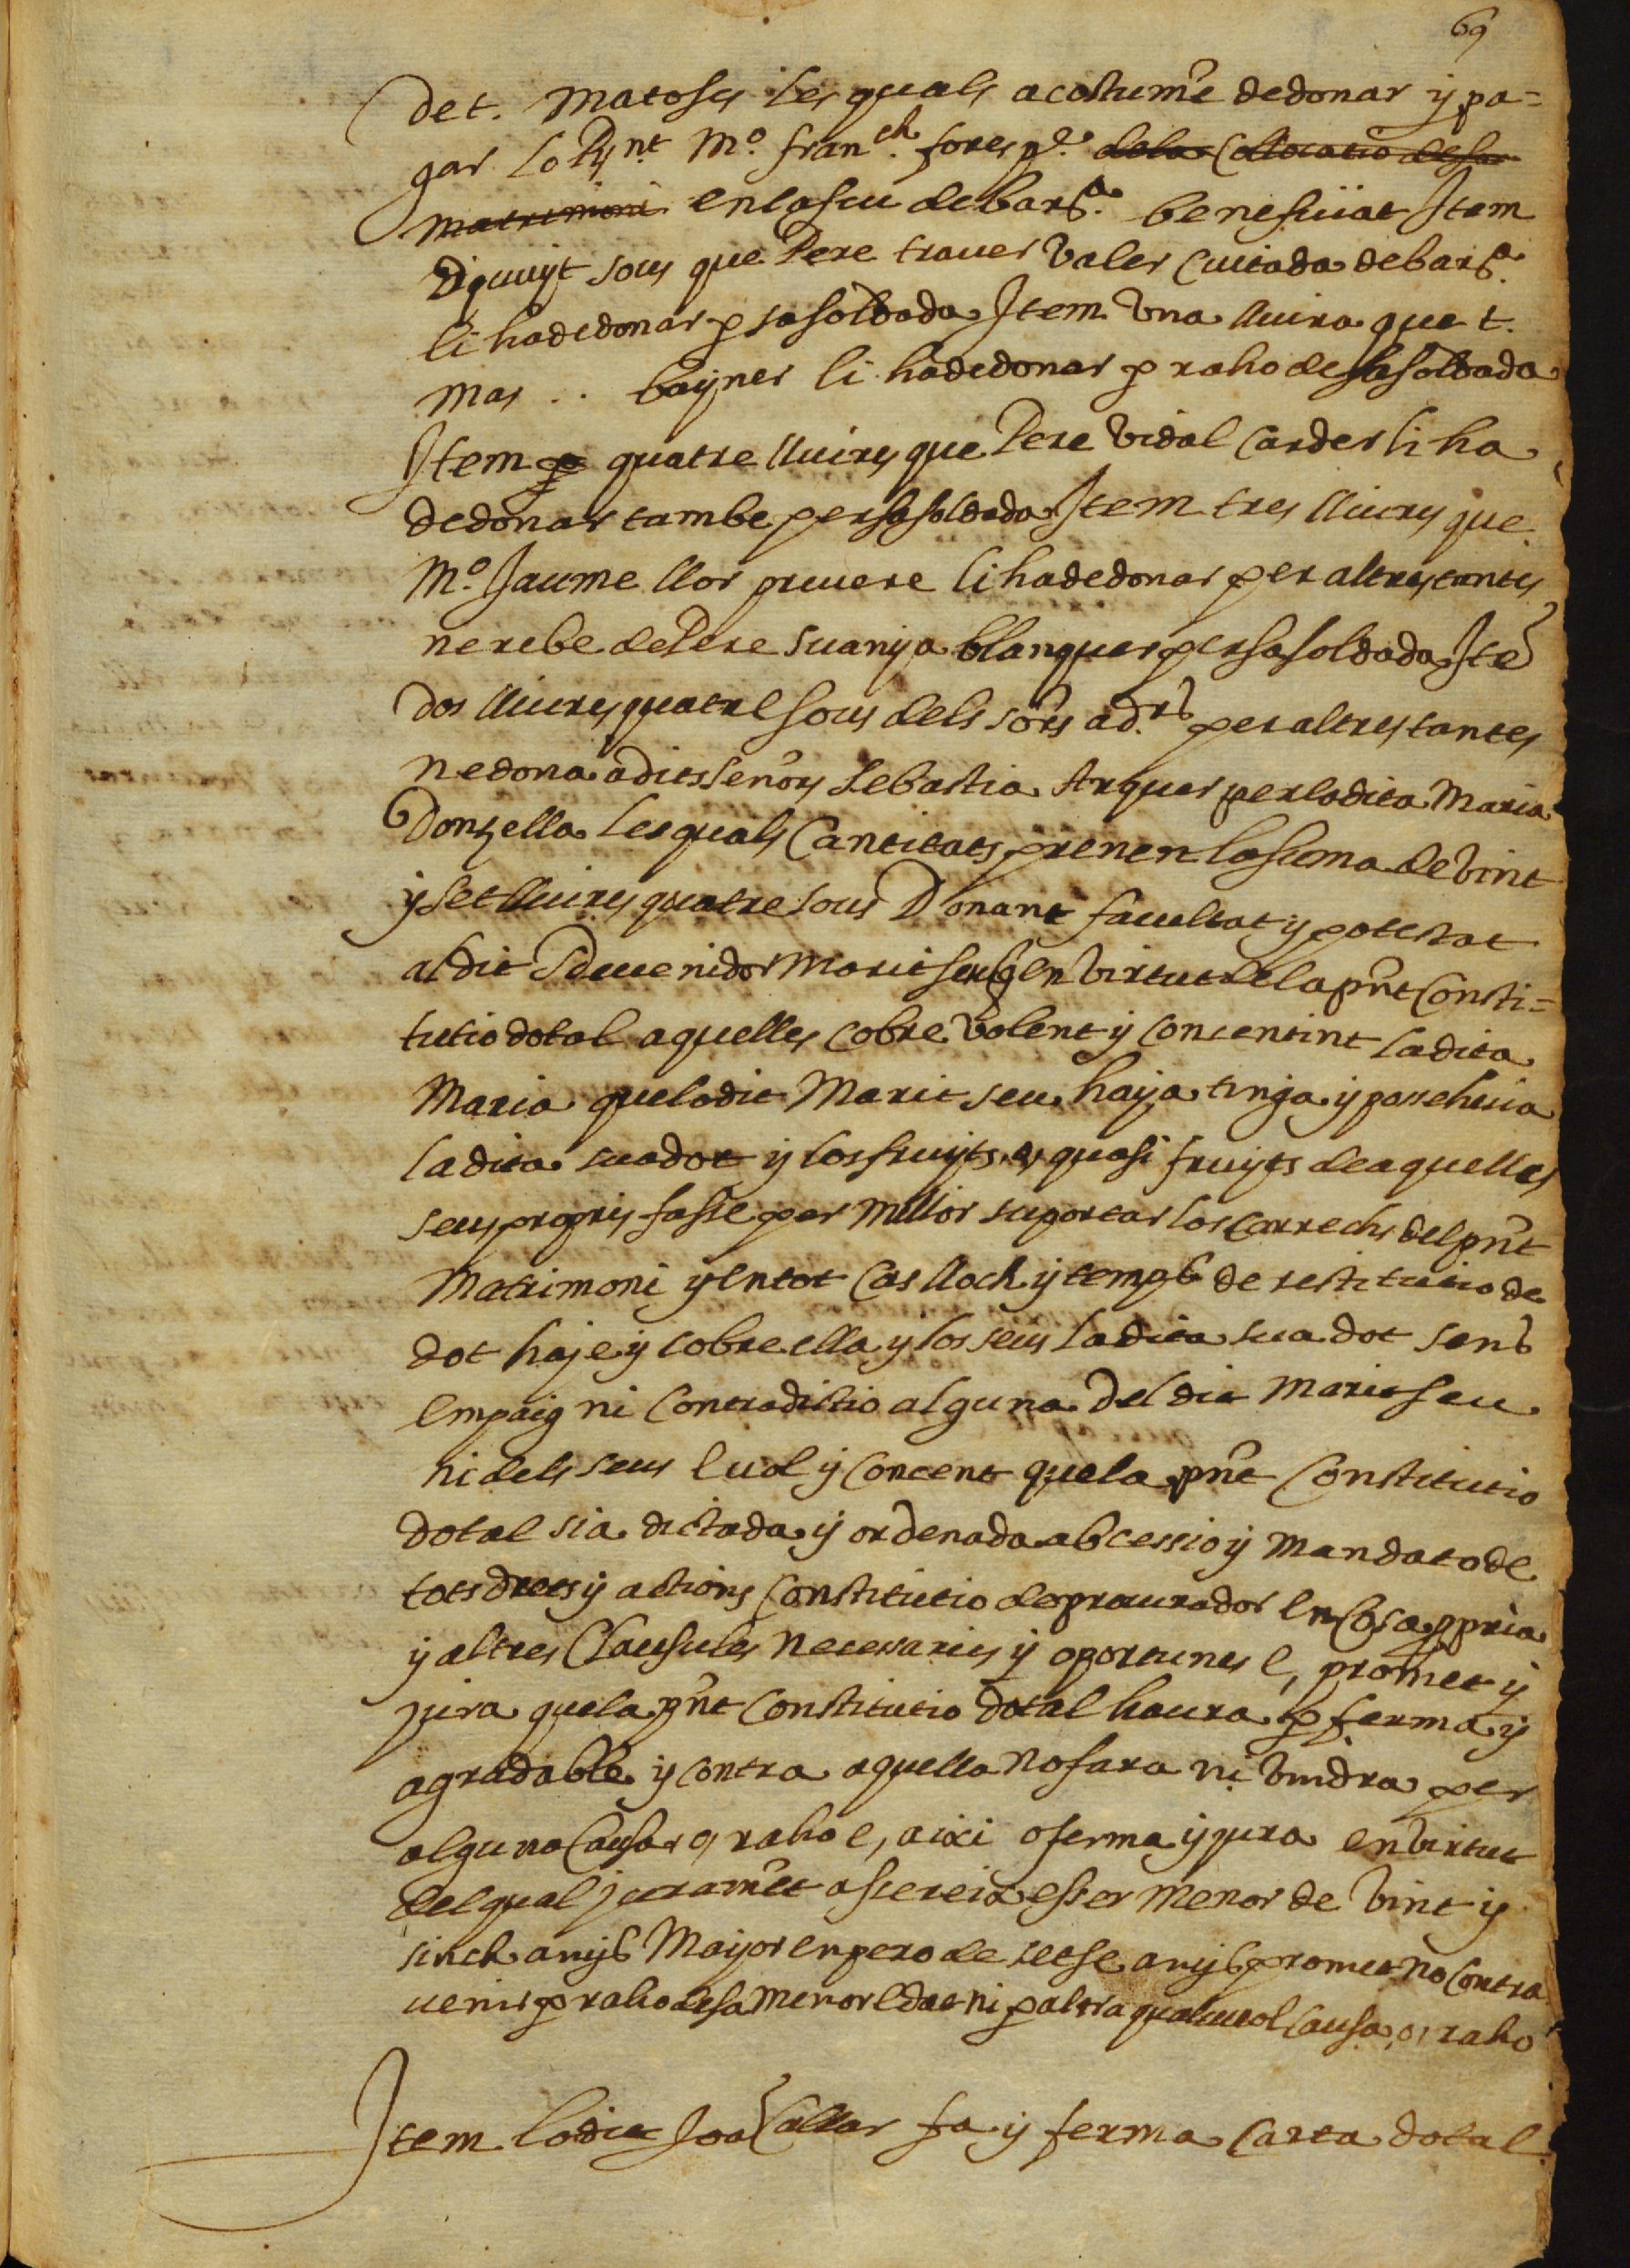 69
det. Matoses les quals acostume dedonar y pa=
gar lo Rnt Mo. Franch. fores pe. dela Collocatio desar
matrimoni enlaseu debarsa. benefitiat Item
sous que Pere trauer Valer Ciutada debarsa.
li hadedonar p sasoldada Item Vna lliura que t.
mas .. bayner li hadedonar p raho desasoldada
Item p quatre lliures que Pere Vidal Carder li ha
dedonar tambe persasoldada Item tres lliures que
Mo. Jaume llor li hadedonar per altres tantes
ne rebe de Pere suanya blanquer persasoldada Ite
dos lliures quatre sous dels sors adrs peraltres tantes
nedona adits señors Sebastia Arquer perladita Maria
Donzella les quals Cantitats prenen lasuma de Vint
y set lliures quatre sous Donant facultat y potestat
aldit Sdeuenidor Marit seu q en Virtut dela pnt Consti=
tutio dotal aquelles Cobre Volent y Concentint ladita
Maria quelodit Marit seu haja tinga y possehesia
ladita suadot y los fruyts, o, quasi fruyts deaquelles
seus propris fasse per Millor suportar los Carrechs del pnt
Matrimoni y entot Cas lloch y temps de restitutio de
dot haje y cobre ella y los seus ladita sua dot sens
empaig ni Contradictio alguna del dit Marit seu
ni dels seus E vol y Concent quela pnt Constitutio
dotal sia dictada y ordenada ab cessio y Mandato de
tots drets y actions Constitutio deprocurador en Cosa ppria
y altres Clausules necessaries y oportunes e, promet y
jura quela pnt Constitutio dotal haura p ferma y
agradable y contra aquella nofara ni Vindra per
alguna Causa, o, raho e, aixi oferma y jura enVirtut
delqual juramet assereix esser menor de Vint y
sinch anys Major enpero de setse anys promet no Contra
uenir p raho desa menor edat ni p altra qualseuol Causa, o, raho
Item lodit Joa Callar fa y ferma Carta dotal